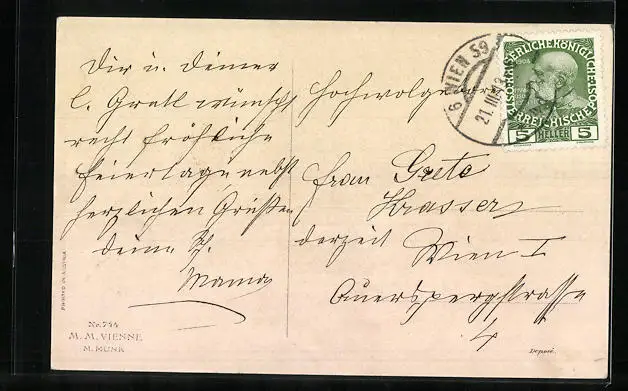 Dir u. Deiner
l. Gretl wünscht
recht fröhliche
Feiertage nebst
herzlichen Grüßen
Deine
Mama
Hochwolgeboren
Frau Grete
Krasser
derzeit Wien I
Auerspergstrasse
4
6 WIEN 59
21. III
KAISERLICHE KÖNIGLICHE ÖSTERREICHISCHE POST
1908
5 HELLER 5
PRINTED IN AUSTRIA
Nr. 744
M. M. VIENNE
M. MUNK
Deposé.